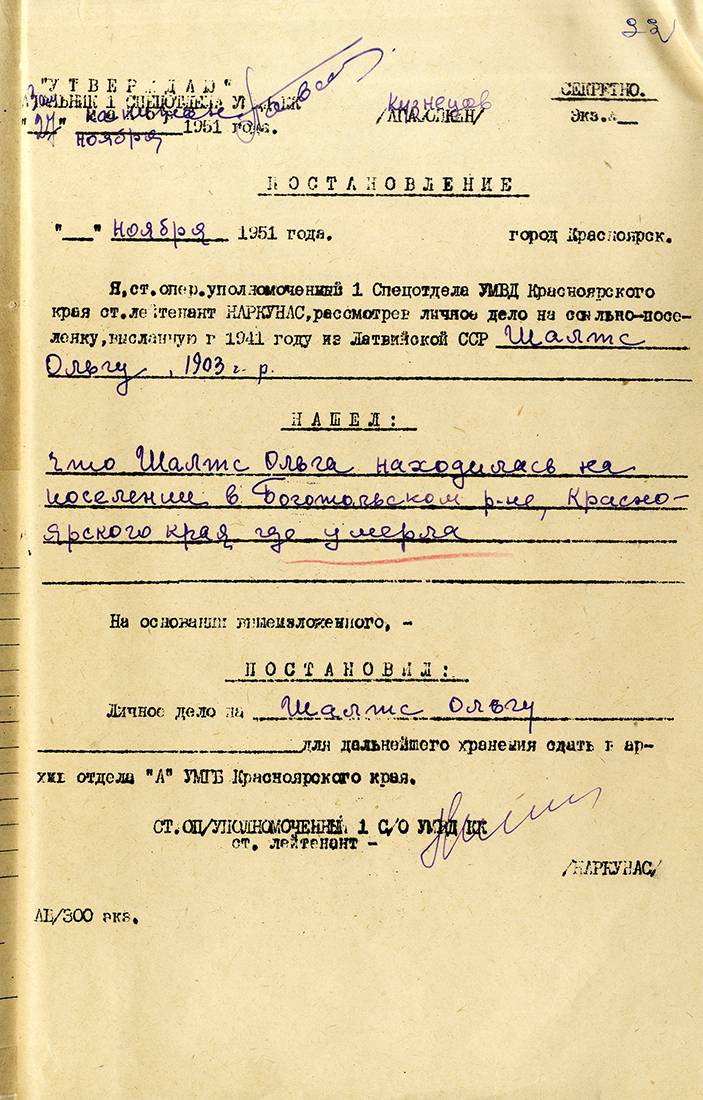 22
"УТВЕРЖДАЮ"
Зам
НАЧАЛЬНИК 1 СПЕЦОТДЕЛА
СЕКРЕТНО.
капитан
Кузнецов
/АПАСОЧКИН/
Экз.№__
"27" ноября 1951 года.
ПОСТАНОВЛЕНИЕ
"__" ноября 1951 года. город Красноярск.
Я, ст.опер.уполномоченный 1 Спецотдела УМВД Красноярского
края ст.лейтенант НАРКУНАС, рассмотрев личное дело на ссыльно-посе-
ленку, высланную в 1941 году из Латвийской ССР Шалтс
Ольгу, 1903 г. р.
НАШЕЛ:
что Шалтс Ольга находилась на
поселении в Боготольском р-не, Красно-
ярского края, где умерла
На основании вышеизложенного, -
ПОСТАНОВИЛ:
Личное дело на Шалтс Ольгу
для дальнейшего хранения сдать в ар-
хив отдела "А" УМГБ Красноярского края.
СТ.ОП/УПОЛНОМОЧЕННЫЙ 1 С/О УМВД КК
ст. лейтенант -
/НАРКУНАС/
/300 экз.